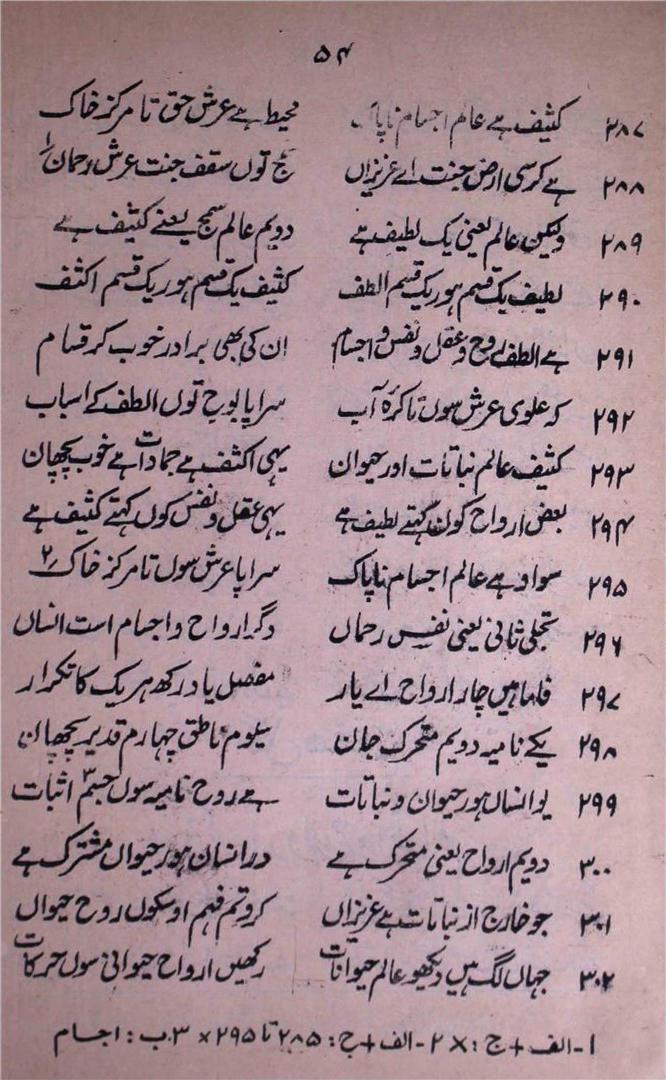 ۵۴
۲۸۷ کثیف ہے عالم اجسام ناپاک محیط ہے عرش حق تا مرکز خاک
۲۸۸ ہے کرسی ارض جنت اے عزیزاں سمج توں سقف جنت عرش رحمان۱
۲۸۹ ولیکن عالم یعنی یک لطیف ہے دویم عالم سمج یعنے کثیف ہے
۲۹۰ لطیف یک قسم ہور یک قسم الطف کثیف یک قسم ہور یک قسم اکثف
۲۹۱ ہے الطف روح و عقل و نفس و اجسام ان کی بھی برادر خوب کر قسام
۲۹۲ کہ علوی عرش سوں تا کرۂ آب سراپا بوج توں الطف کے اسباب
۲۹۳ کثیف عالم نباتات اور حیوان یہی اکثف ہے جمادات ہے خوب پچھان
۲۹۴ بعض ارواح کوں کہتے لطیف ہے یہی عقل و نفس کوں کہتے کثیف ہے
۲۹۵ سواد ہے عالم اجسام ناپاک سراپا عرش سوں تا مرکز خاک۲
۲۹۶ تجلی ثانی یعنی نفس رحماں دگر ارواح و اجسام است انساں
۲۹۷ فاما ہیں چار ارواح اے یار مفصل یاد رکھ ہر یک کا تکرار
۲۹۸ یکے نامیہ دویم متحرک جان سیوم ناطق چہارم قدیر پچھان
۲۹۹ یو انساں ہور حیوان و نباتات ہے روح نامیہ سوں جسم۳ اثبات
۳۰۰ دویم ارواح یعنی متحرک ہے در انسان ہور حیواں مشترک ہے
۳۰۱ جو خارج از نباتات ہے عزیزاں کرو تم فہم اوسکوں روح حیواں
۳۰۲ جہاں لگ ہیں دیکھو عالم حیوانات رکھیں ارواح حیوانی سوں حرکات
۱۔ الف + ج : × ۲۔ الف + ج : ۲۸۵ تا ۲۹۵ × ۳۔ ب : اجسام